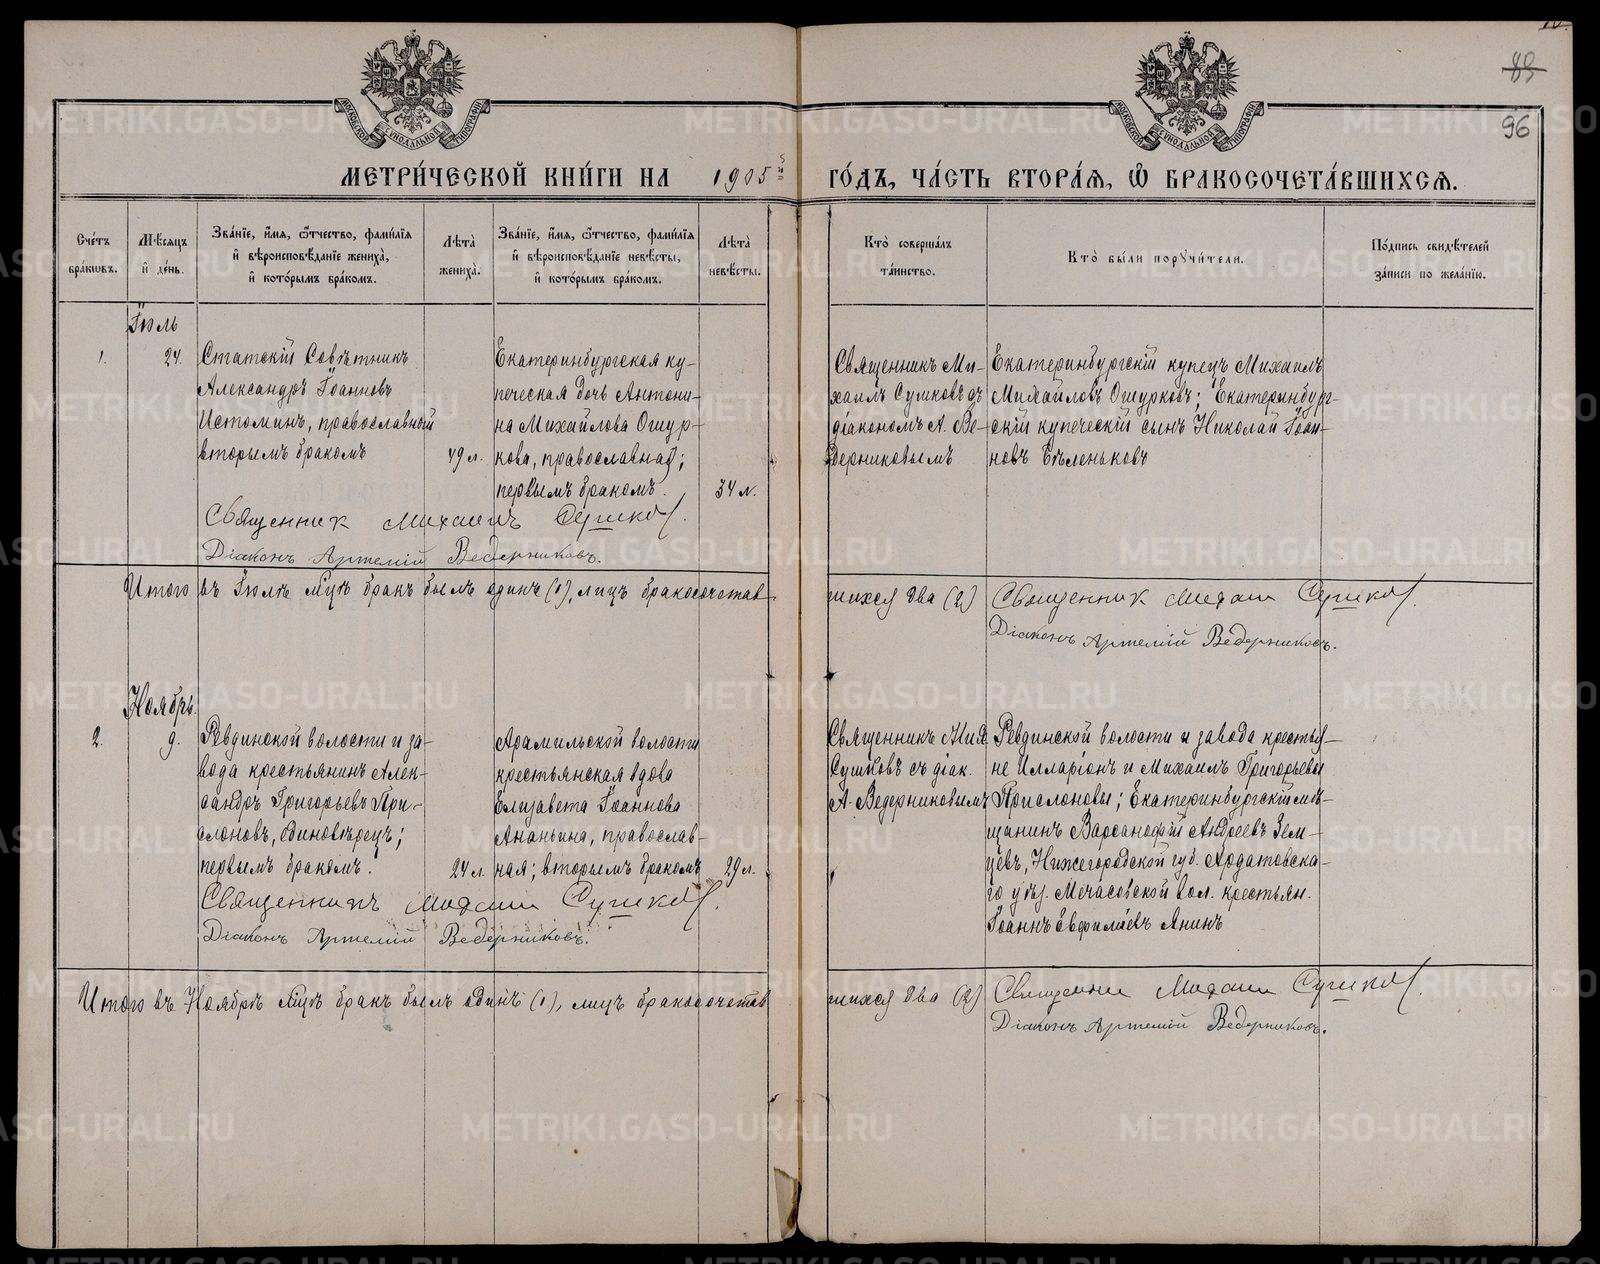 МЕТРИ́ЧЕСКОЙ КНИ́ГИ НА 1905 й ГО́ДЪ, ЧА́СТЬ ВТОРА́Я, Ѡ҆ БРАКОСОЧЕТА́ВШИХСЯ.
96
Сче́тъ бра́кωвъ.
Мѣ́сяцъ и҆ де́нь.
Зва́нїе, и҆́мя, ѻ҆́тчество, фами́лїя и҆ вѣроисповѣ́данїе жениха̀, и҆ кото́рымъ бра́комъ.
Лѣ́та̀ жениха̀.
Зва́нїе, и҆́мя, ѻ҆́тчество, фами́лїя и҆ вѣроисповѣ́данїе невѣ́сты, и҆ кото́рымъ бра́комъ.
Лѣ́та̀ невѣ́сты.
Кто̀ соверша́лъ та́инство.
Кто̀ бы́ли поручи́тели.
По́дпись свидѣ́телей за́писи по жела́нїю.
Іюль
1.
24.
Статскій Совѣтникъ
Александръ Іоанновъ
Истоминъ, православный
вторымъ бракомъ
49 л.
Екатеринбургская ку-
печеская дочь Антони-
на Михайлова Ошур-
кова, православная;
первымъ бракомъ.
34 л.
Священникъ Ми-
хаилъ Сушковъ съ
діакономъ А. Ве-
дерниковымъ
Екатеринбургскій купецъ Михаилъ
Михайловъ Ошурковъ; Екатеринбург-
скій купеческій сынъ Николай Іоан-
новъ Бѣленьковъ
Священникъ Михаилъ Сушковъ.
Діаконъ Артемій Ведерниковъ.
Итого въ Іюлѣ м҃цѣ бракъ былъ одинъ (1), лицъ бракосочетав
шихся два (2)
Священникъ Михаилъ Сушковъ.
Діаконъ Артемій Ведерниковъ.
Ноябрь.
2.
9.
Ревдинской волости и за-
вода крестьянинъ Алек-
сандръ Григорьевъ При-
слоновъ, единовѣрецъ;
первымъ бракомъ.
24 л.
Арамильской волости
крестьянская вдова
Елизавета Іоаннова
Ананьина, православ-
ная; вторымъ бракомъ
29 л.
Священникъ
Сушковъ съ діак.
А. Ведерниковымъ
Ревдинской волости и завода крестья-
не Илларіонъ и Михаилъ Григорьевы
Прислоновы; Екатеринбургскій мѣ-
щанинъ Варсанофій Андреевъ Зем-
цевъ, Нижегородской губ. Ардатовска-
го уѣз. Мечасовской вол. крестьян.
Іоаннъ Евфиміевъ Янинъ
Священникъ Михаилъ Сушковъ.
Діаконъ Артемій Ведерниковъ.
Итого въ Ноябрѣ м҃цѣ бракъ былъ одинъ (1), лицъ бракосочетав
шихся два (2)
Священникъ Михаилъ Сушковъ.
Діаконъ Артемій Ведерниковъ.
METRIKI.GASO-URAL.RU